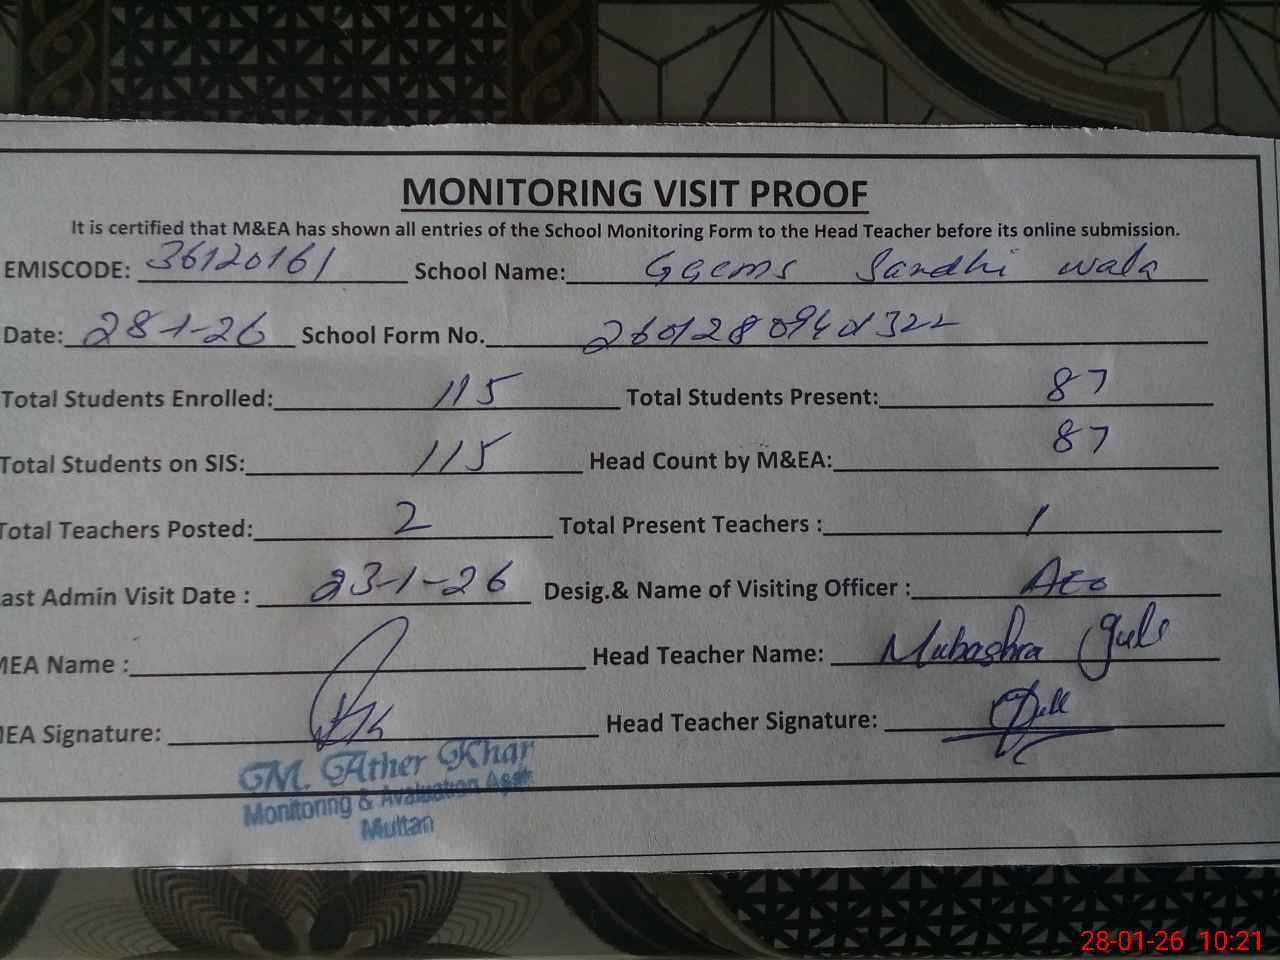 MONITORING VISIT PROOF
It is certified that M&EA has shown all entries of the School Monitoring Form to the Head Teacher before its online submission.
EMISCODE: 36120161 School Name: Ggems Sandhi wala
Date: 28-1-26 School Form No.
Total Students Enrolled: 115 Total Students Present: 87
Total Students on SIS: 115 Head Count by M&EA: 87
Total Teachers Posted: 2 Total Present Teachers : 1
ast Admin Visit Date : 23-1-26 Desig.& Name of Visiting Officer : AEO
MEA Name : Head Teacher Name: Mubashra Gull
IEA Signature: Head Teacher Signature:
M. Ather Khar
Monitoring & Avaluation Asstt
Multan
28-01-26 10:21